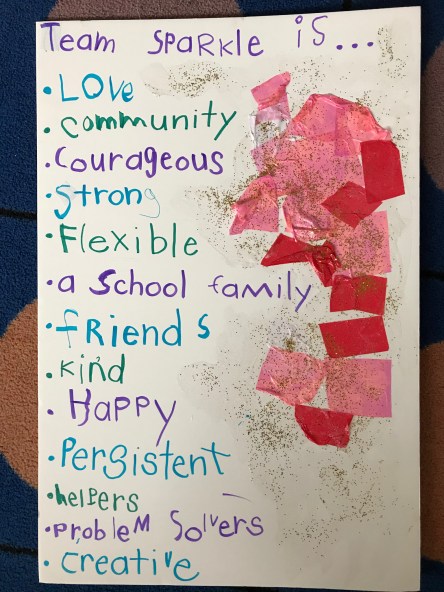 Team SPaRkle iS...
• LOVe
• community
• Courageous
• Strong
• Flexible
• a School family
• fRiend S
• kind
• HaPPy
• Persistent
• helpers
• pRobleM Solvers
• creative